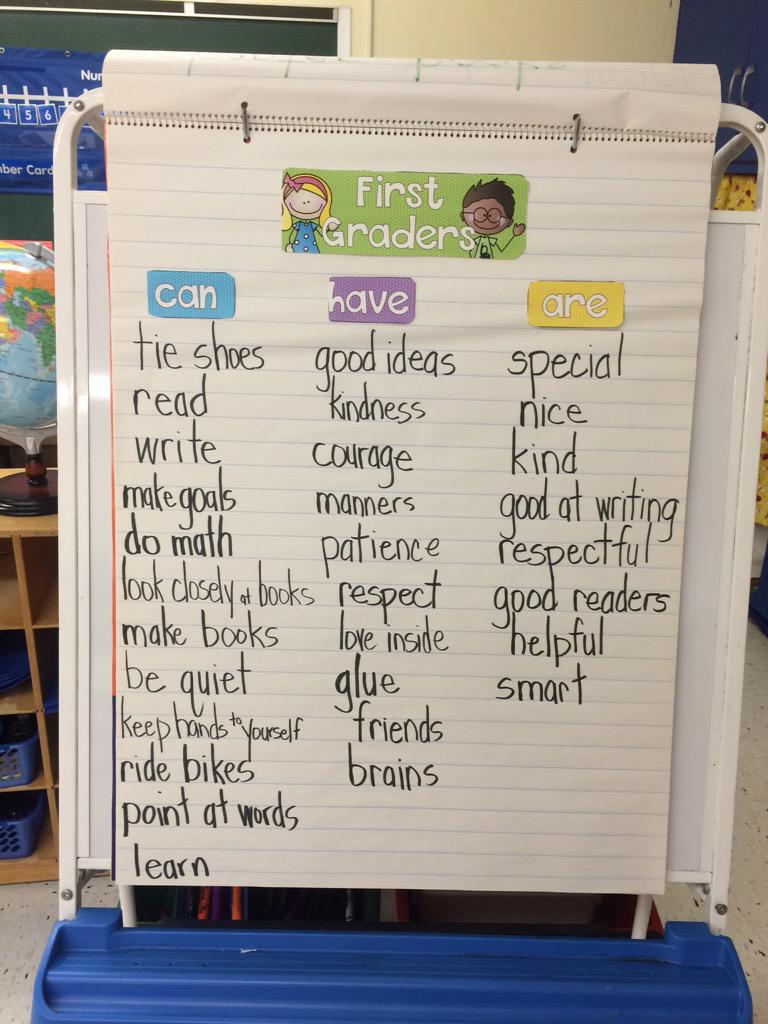 Num
4 5 6
mber Card
First
Graders
can
have
are
tie shoes
good ideas
special
read
kindness
nice
write
courage
kind
make goals
manners
good at writing
do math
patience
respectful
look closely at books
respect
good readers
make books
love inside
helpful
be quiet
glue
smart
keep hands to yourself
friends
ride bikes
brains
point at words
learn